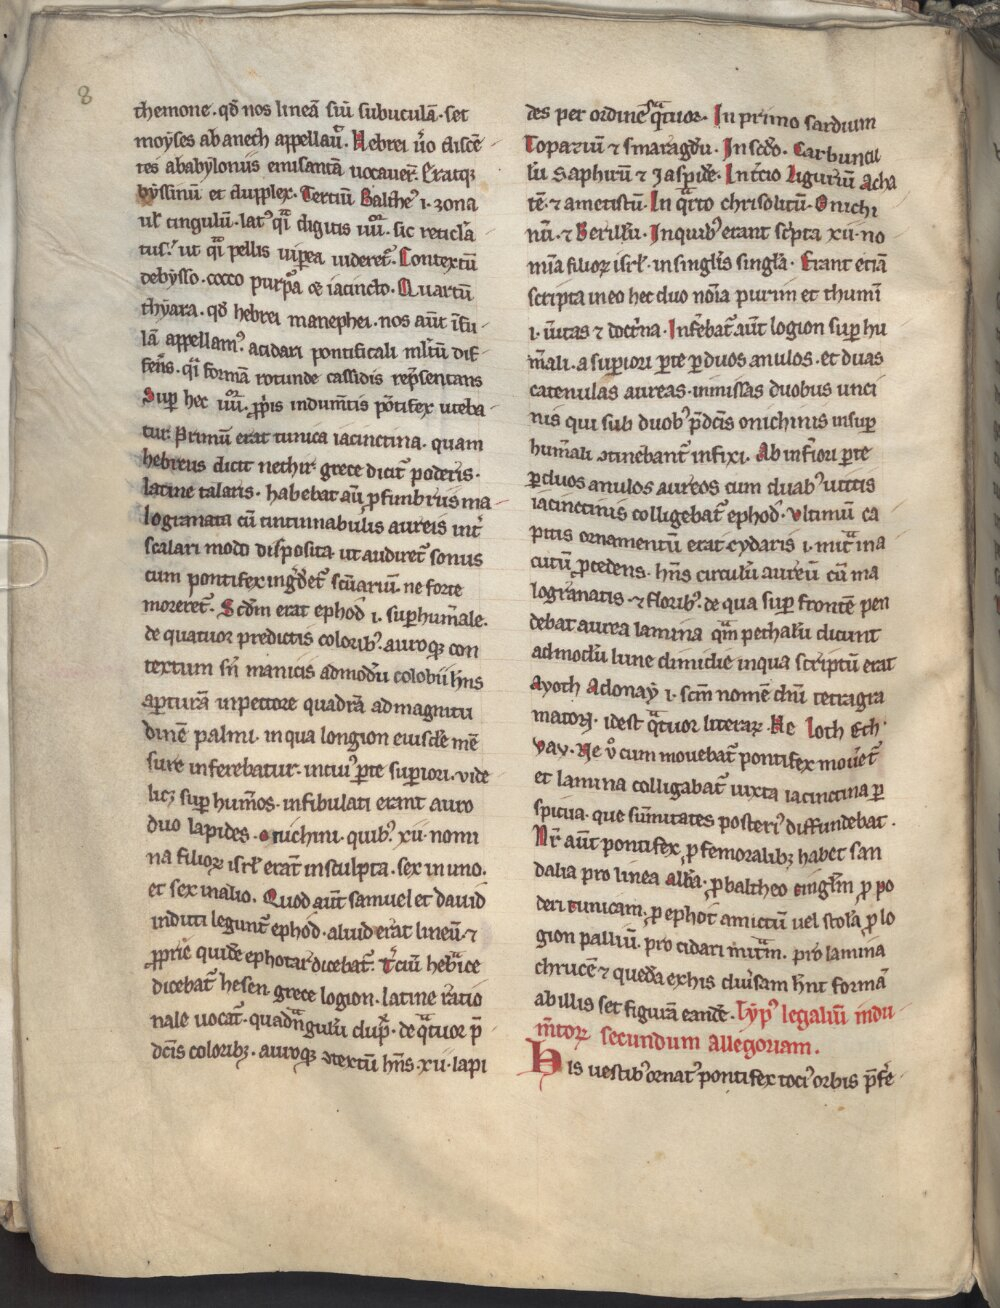 8
themone · qđ nos lineā siū subuculā · set
moẏses abanech appellaū͛ · Hebrei u͛o discē
tes ababẏloniis emisantā uocauer̄ · Eratqꝫ
bẏssinū et duplex · Tertiū Balthe᷒ · i · zona
ul̛ cingulū · lat᷒ q̄ͣi digitis iiii͛ · sic reticl̄a
tus ·͛ ut qͣi pellis uip̱ea uideret᷑ · Contextū
debẏsso · cocco purp̱a ⁊ iacincto · Quartū
thẏara · qđ hebrei manephei · nos aūt īfu
lā appellam᷒ · acidari pontificali ml̄tū dif
fer̄s · qͥi formā rotunde cassidis rep̄sentans
Sup̱ hec iiii͛ · ꝓp̛is indum̄tis pōtifex uteba
tur · Primū erat tunica iacinctina · quam
hebreus dicit nechir · grece dicit᷑ poderis ·
latine talaris · habebat aū p̱ fimbriis ma
logranata cū tintinnabulis aureis int͛
scalari modo disposita · ut audiret᷑ sonus
cum pontifex ing̛der̄et᷑ sc̄uariū · ne forte
moreret᷑ · Scđm erat ephod · i · sup̱hum̄ale ·
de quatuor predictis colorib᷒ · auroqꝫ con
textum sn̄ manicis admodū colobii hn̄s
ap̱turā inpectore quadrā admagnitu
dinē palmi · inqua longion eiusdē mē
sure inferebatur · intui᷒ p̱te sup̱iori · vide
licꝫ sup̱ hum̄os · infibulati erant auro
duo lapides · onichini · quib᷒ · xii · nomi
na filioꝝ isrl̄ erāt insculpta · sex in uno ·
et sex inalio · Quod aūt samuel et dauid
induti legunt᷑ ephod · aliud erat lineū · ⁊
ꝓprie quidē ephotar dicebat᷑ · T͛ciū hebͣice
dicebat᷑ hesen · grece logion · latine r̄atio
nale uocat᷑ · quadͣngulū dup̄x · de qͣtuor p̄
dc̄is coloribꝫ · auroqꝫ ꝯtextū hn̄s · xii · lapi
des per ordinē qͣtuor · In primo sardium
Topaziū ⁊ smaragdū · In scđo · Carbuncul
lū Saphirū ⁊ Jaspidē · In t͛cio Liguriū Acha
tē · ⁊ ametistū · In qͣrto chrisolitū · Onichi
nū · ⁊ Berillū · Inquib᷒ erant sc̛pta xii · no
mīa filioꝝ isrl̄ · insingl̄is singl̄a · Erant etiā
scripta ineo hec duo noīa purim et thumī
i · u͛itas ⁊ doct̛na · Inferebat᷑ aūt logion sup̱ hu
m̄ali · a sup̱iori p̱te p̱ duos anulos · et duas
catenulas aureas · inmissas duobus unci
nis qui sub duob᷒ p̄dc̄is onichinis insup̱
hum̄ali ꝯtinebant᷑ infixi · Ab inf͛iori p̱te
p̱ duos anulos aureos cum duab᷒ uittis
iacinctinis colligebat᷑ ephod · vltimū ca
pitis ornamentū erat cydaris · i · mitͣ ina
cutū ꝓcedens · hn̄s circulū aureū cū ma
logranatis · ⁊ florib᷒ · de qua sup̱ frontē pen
debat aurea lamina · qͣm pethalū dicunt
admodū lune dimidie inqua sc̛iptū erat
Aẏoth Adonaẏ · i · scm̄ nomē dn̄i tetragra
matoɳ · idest qͣtuor literaꝝ · He Ioth Eth
Vav · He u͛o cum mouebat᷑ pontifex mouet͛᷑
et lamina colligabat᷑ iuxta iacinctina p̱
spicua · que sum̄itates posteri᷒ diffundebat ·
Nr̄ aūt pontifex · ꝓ femoralibꝫ habet san
dalia pro linea alba · ꝓ baltheo cingl̄m · ꝓ po
deri tunicam · ꝓ ephot amictū uel stola · ꝓ lo
gion palliū · pro cidari mitͣm · pro lamina
crucē ⁊ quedā exhis diu͛sam hn̄t formā
abillis set figurā eandē · Tẏp᷒ legaliū indu
m̄toꝝ secundum Allegoriam ·
His uestib᷒ ornat᷒ pontifex toci᷒ orbis p̄fe͛